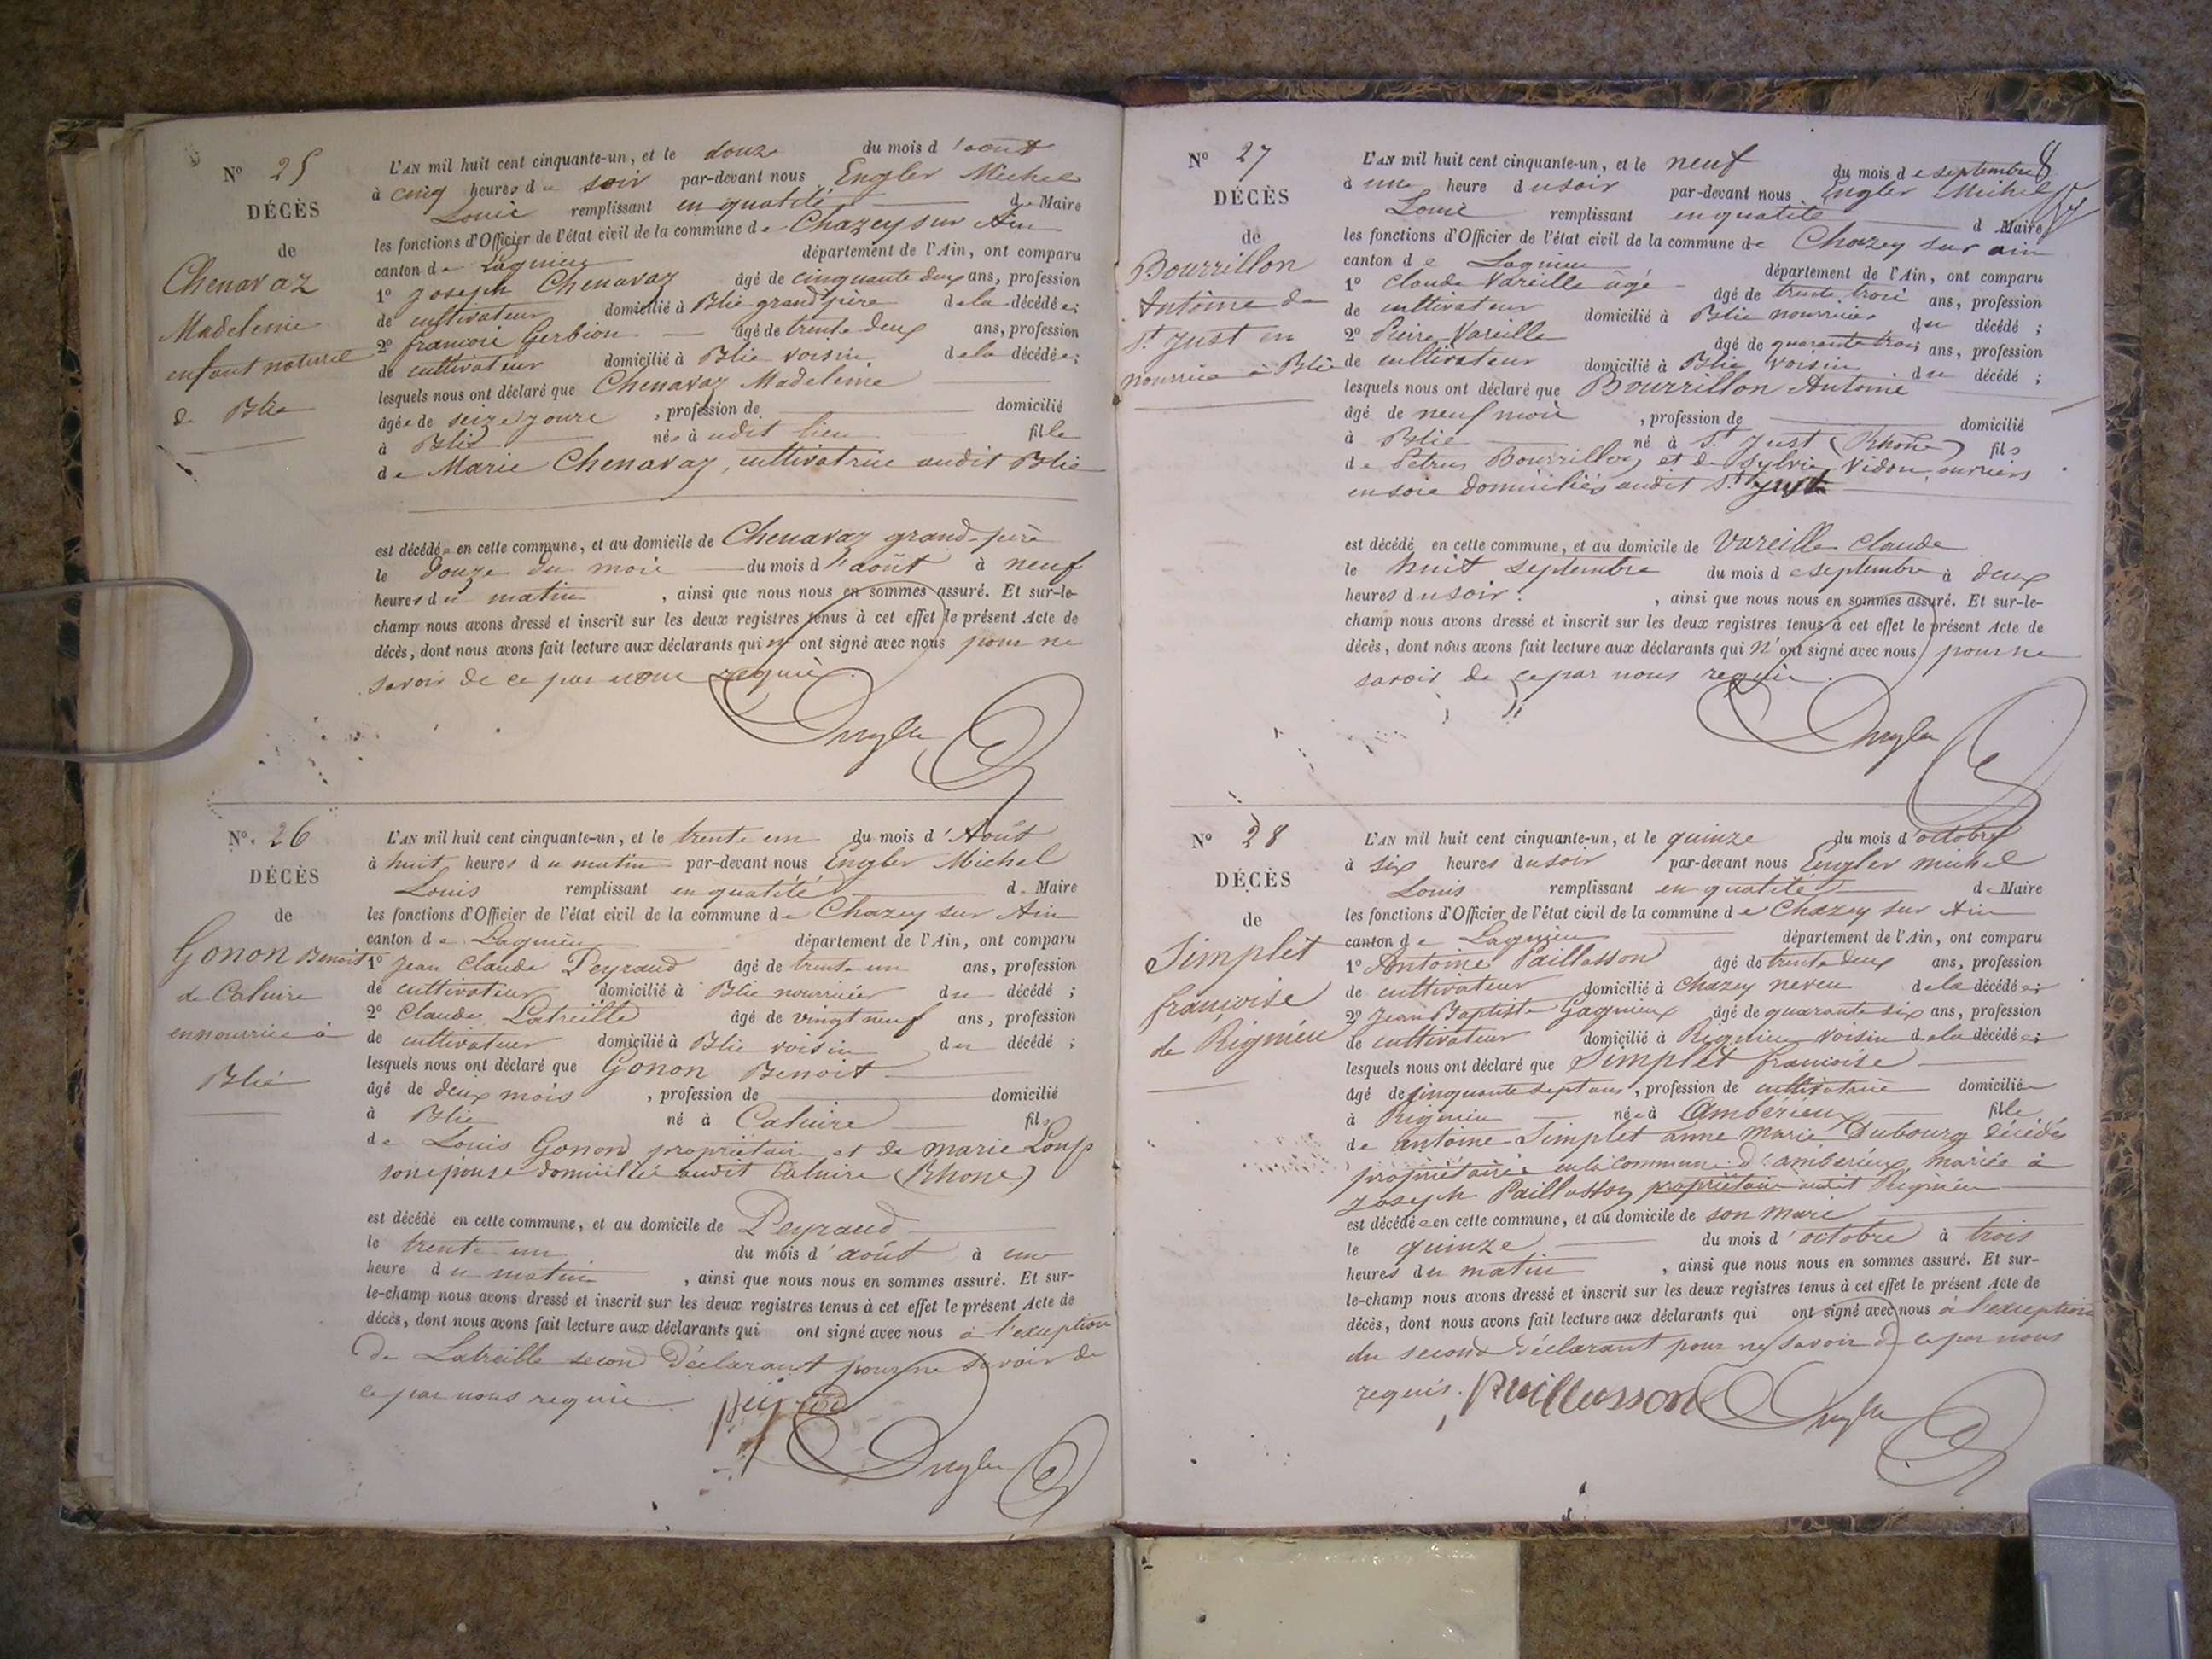 N° 25
DÉCÈS
de
Chenavaz
Madeleine
enfant naturel
de Blie
L'AN mil huit cent cinquante-un, et le douze du mois d'août
à cinq heures du soir par-devant nous Engler Michel
Louis remplissant en qualité de Maire
les fonctions d'Officier de l'état civil de la commune de Chazey sur Ain
canton de Lagnieu département de l'Ain, ont comparu
1° Joseph Chenavaz âgé de cinquante deux ans, profession
de cultivateur domicilié à Blie grand père de la décédée;
2° francois Gerbion âgé de trente deux ans, profession
de cultivateur domicilié à Blie voisin de la décédée;
lesquels nous ont déclaré que Chenavaz Madeleine
âgée de seize jours, profession de domicilié
à Blie née à udit lieu fille
de Marie Chenavaz, cultivatrice audit Blie
est décédée en cette commune, et au domicile de Chenavaz grand-père
le douze du mois du mois d'août à neuf
heures du matin, ainsi que nous nous en sommes assuré. Et sur-le-
champ nous avons dressé et inscrit sur les deux registres tenus à cet effet le présent Acte de
décès, dont nous avons fait lecture aux déclarants qui n' ont signé avec nous pour ne
savoir de ce par nous requis.
Engler
N°. 26
DÉCÈS
de
Gonon Benoit
de Caluire
en nourrice à
Blie
L'AN mil huit cent cinquante-un, et le trente un du mois d'Août
à huit heures du matin par-devant nous Engler Michel
Louis remplissant en qualité de Maire
les fonctions d'Officier de l'état civil de la commune de Chazey sur Ain
canton de Lagnieu département de l'Ain, ont comparu
1° Jean Claude Peyraud âgé de trente un ans, profession
de cultivateur domicilié à Blie nourricier du décédé;
2° Claude Latreille âgé de vingt neuf ans, profession
de cultivateur domicilié à Blie voisin du décédé;
lesquels nous ont déclaré que Gonon Benoit
âgé de deux mois, profession de domicilié
à Blie né à Caluire fils
de Louis Gonon propriétaire et de marie Loup
son épouse domiciliés audit Caluire (Rhone)
est décédé en cette commune, et au domicile de Peyraud
le trente un du mois d'août à une
heure du matin, ainsi que nous nous en sommes assuré. Et sur-
le-champ nous avons dressé et inscrit sur les deux registres tenus à cet effet le présent Acte de
décès, dont nous avons fait lecture aux déclarants qui ont signé avec nous à l'exception
de Latreille second déclarant pour ne savoir de
ce par nous requis.
Engler
8
N° 27
DÉCÈS
de
Bourrillon
Antoine de
St. Just en
nourrice à Blie
L'AN mil huit cent cinquante-un, et le neuf du mois de septembre
à une heure du soir par-devant nous Engler Michel
Louis remplissant en qualité d Maire
les fonctions d'Officier de l'état civil de la commune de Chazey sur ain
canton de Lagnieu département de l'Ain, ont comparu
1° Claude Vareille âgé âgé de trente trois ans, profession
de cultivateur domicilié à Blie nourricier du décédé;
2° Pierre Vareille âgé de quarante trois ans, profession
de cultivateur domicilié à Blie voisin du décédé;
lesquels nous ont déclaré que Bourrillon Antoine
âgé de neuf mois, profession de domicilié
à Blie né à St. Just (Rhone) fils
de Petrus Bourrillon et de Sylvie Vidon ouvriers
en soie domiciliés audit St. Just
est décédé en cette commune, et au domicile de Vareille Claude
le huit septembre du mois de septembre à deux
heures du soir., ainsi que nous nous en sommes assuré. Et sur-le-
champ nous avons dressé et inscrit sur les deux registres tenus à cet effet le présent Acte de
décès, dont nous avons fait lecture aux déclarants qui n' ont signé avec nous pour ne
savoir de ce par nous requis.
Engler
N° 28
DÉCÈS
de
Simplet
francoise
de Rignieu
L'AN mil huit cent cinquante-un, et le quinze du mois d'octobre
à six heures du soir par-devant nous Engler michel
Louis remplissant en qualité de Maire
les fonctions d'Officier de l'état civil de la commune de Chazey sur Ain
canton de Lagnieu département de l'Ain, ont comparu
1° Antoine Paillasson âgé de trente deux ans, profession
de cultivateur domicilié à Chazey neveu de la décédée;
2° Jean Baptiste Gagnieux âgé de quarante six ans, profession
de cultivateur domicilié à Rignieu voisin de la décédée;
lesquels nous ont déclaré que Simplet francoise
âgé de cinquante sept ans, profession de cultivatrice domiciliée
à Rignieu née à Ambérieux fille
de antoine Simplet anne Marie Dubourg décédés
propriétaires en la commune d'amberieux, mariée à
Joseph Paillasson propriétaire audit Rignieu
est décédée en cette commune, et au domicile de son mari
le quinze du mois d'octobre à trois
heures du matin, ainsi que nous nous en sommes assuré. Et sur-
le-champ nous avons dressé et inscrit sur les deux registres tenus à cet effet le présent Acte de
décès, dont nous avons fait lecture aux déclarants qui ont signé avec nous à l'exception
du second déclarant pour ne savoir de ce par nous
requis. paillasson Engler